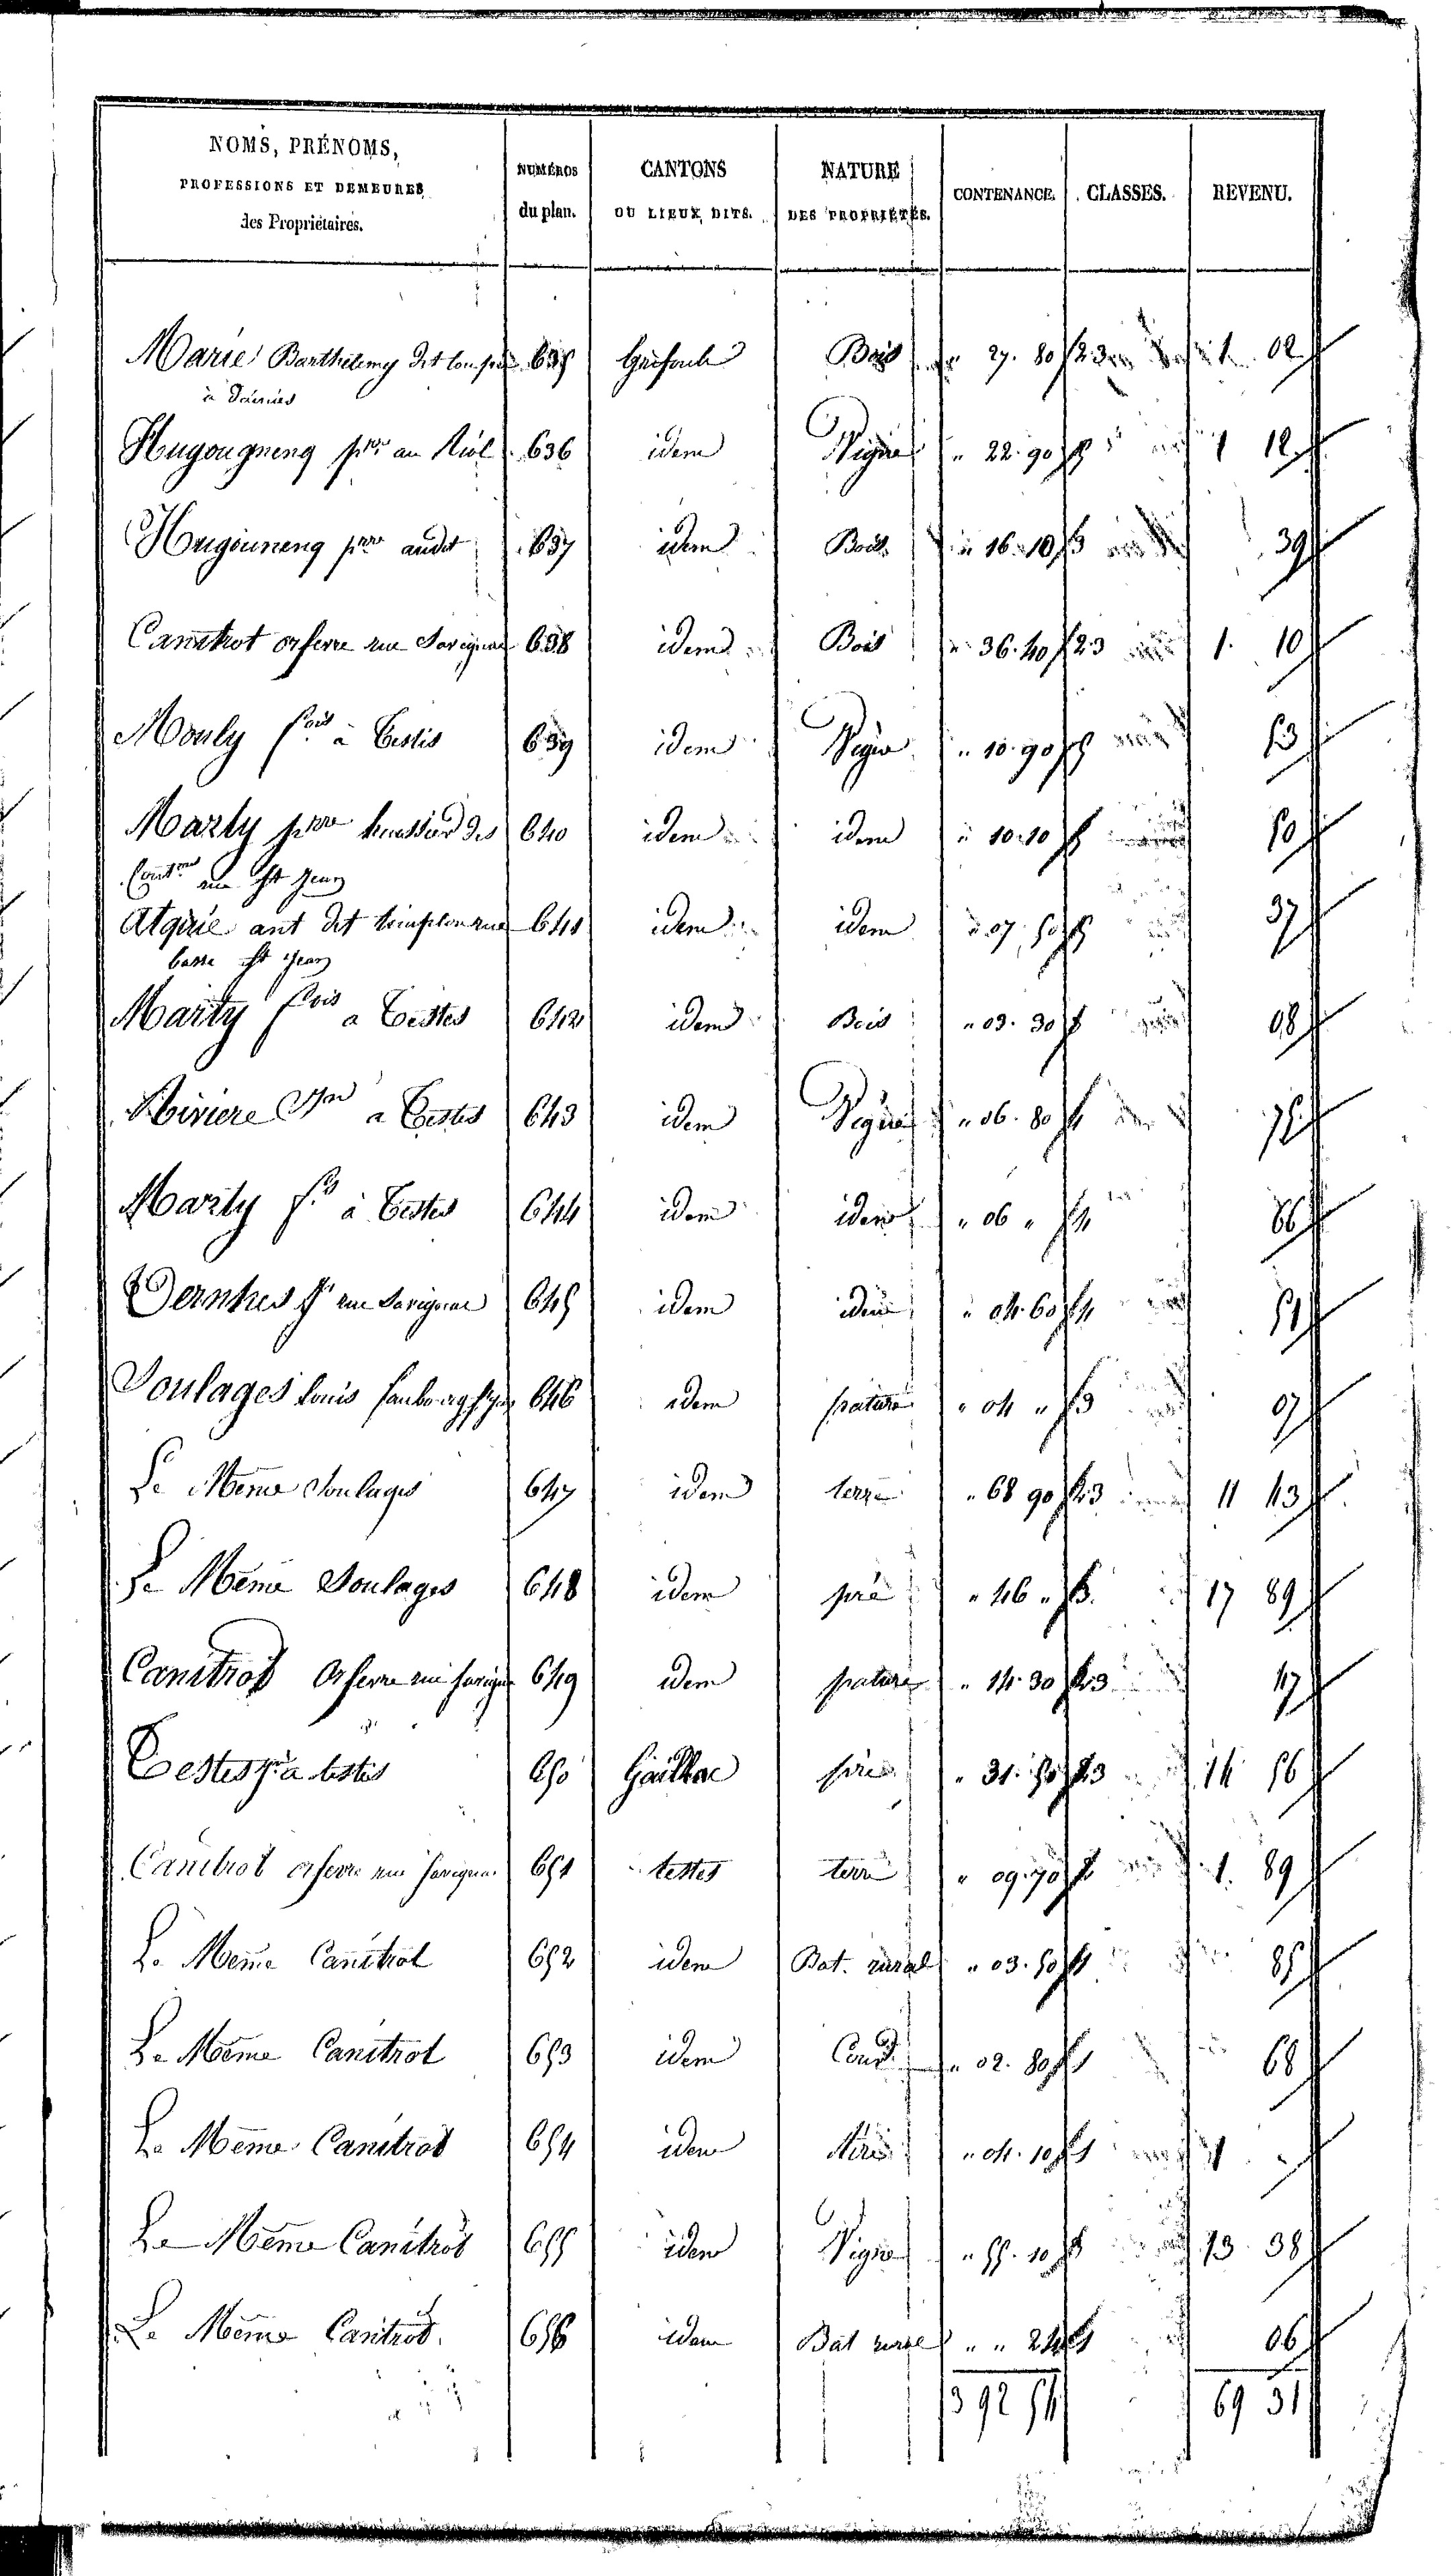 NOMS, PRÉNOMS,
PROFESSIONS ET DEMEURES
des Propriétaires.
NUMÉROS
du plan.
CANTONS
OU LIEUX DITS.
NATURE
DES PROPRIÉTÉS.
CONTENANCE.
CLASSES.
REVENU.
Marie Barthélemy dit 635 Grifoul Bois 27. 80 2.3 1. 02
à
Hugougneng prre au Riol 636 idem Vigne " 22. 90 5 1 12
Hugouneng prre audit 637 idem Bois " 16. 10 3 39
Canitrot orfevre rue Savignac 638 idem Bois " 36. 40 2.3 1. 10
Mouly fçois à Testes 639 idem Vigne " 10. 90 5 53
Marty prre huissier des 640 idem idem " 10. 10 5 50
Contons rue St Jean
Alquié ant dit rue 641 idem idem " 07. 50 5 37
basse St Jean
Marty fçois a Testes 642 idem Bois " 03. 30 3 08
Riviere a Testes 643 idem Vigne " 06. 80 4 75
Marty fs à Testes 644 idem idem " 06 " 4 66
rue Savignac 645 idem idem " 04. 60 4 51
Soulages Louis faubourg St Jean 646 idem pature " 04 " 3 07
Le Même Soulages 647 idem terre " 68 90 2.3 11 43
Le Même Soulages 648 idem pré " 46 " 3. 17 89
Canitrot Orfevre rue Savignac 649 idem pature " 14. 30 2.3 47
Testes à testes 650 Gaillac pré " 31. 50 2.3 14 56
Canitrot orfevre rue Savignac 651 testes terre " 09. 70 2 1. 89
Le Même Canitrot 652 idem Bat. rural " 03. 50 1 85
Le Même Canitrot 653 idem Cour " 02. 80 1 68
Le Même Canitrot 654 idem Aire " 04. 10 1 1 "
Le Même Canitrot 655 idem Vigne " 55. 10 3 13. 38
Le Même Canitrot. 656 idem Bat rural " " 24 1 06
3 92 54 69 31